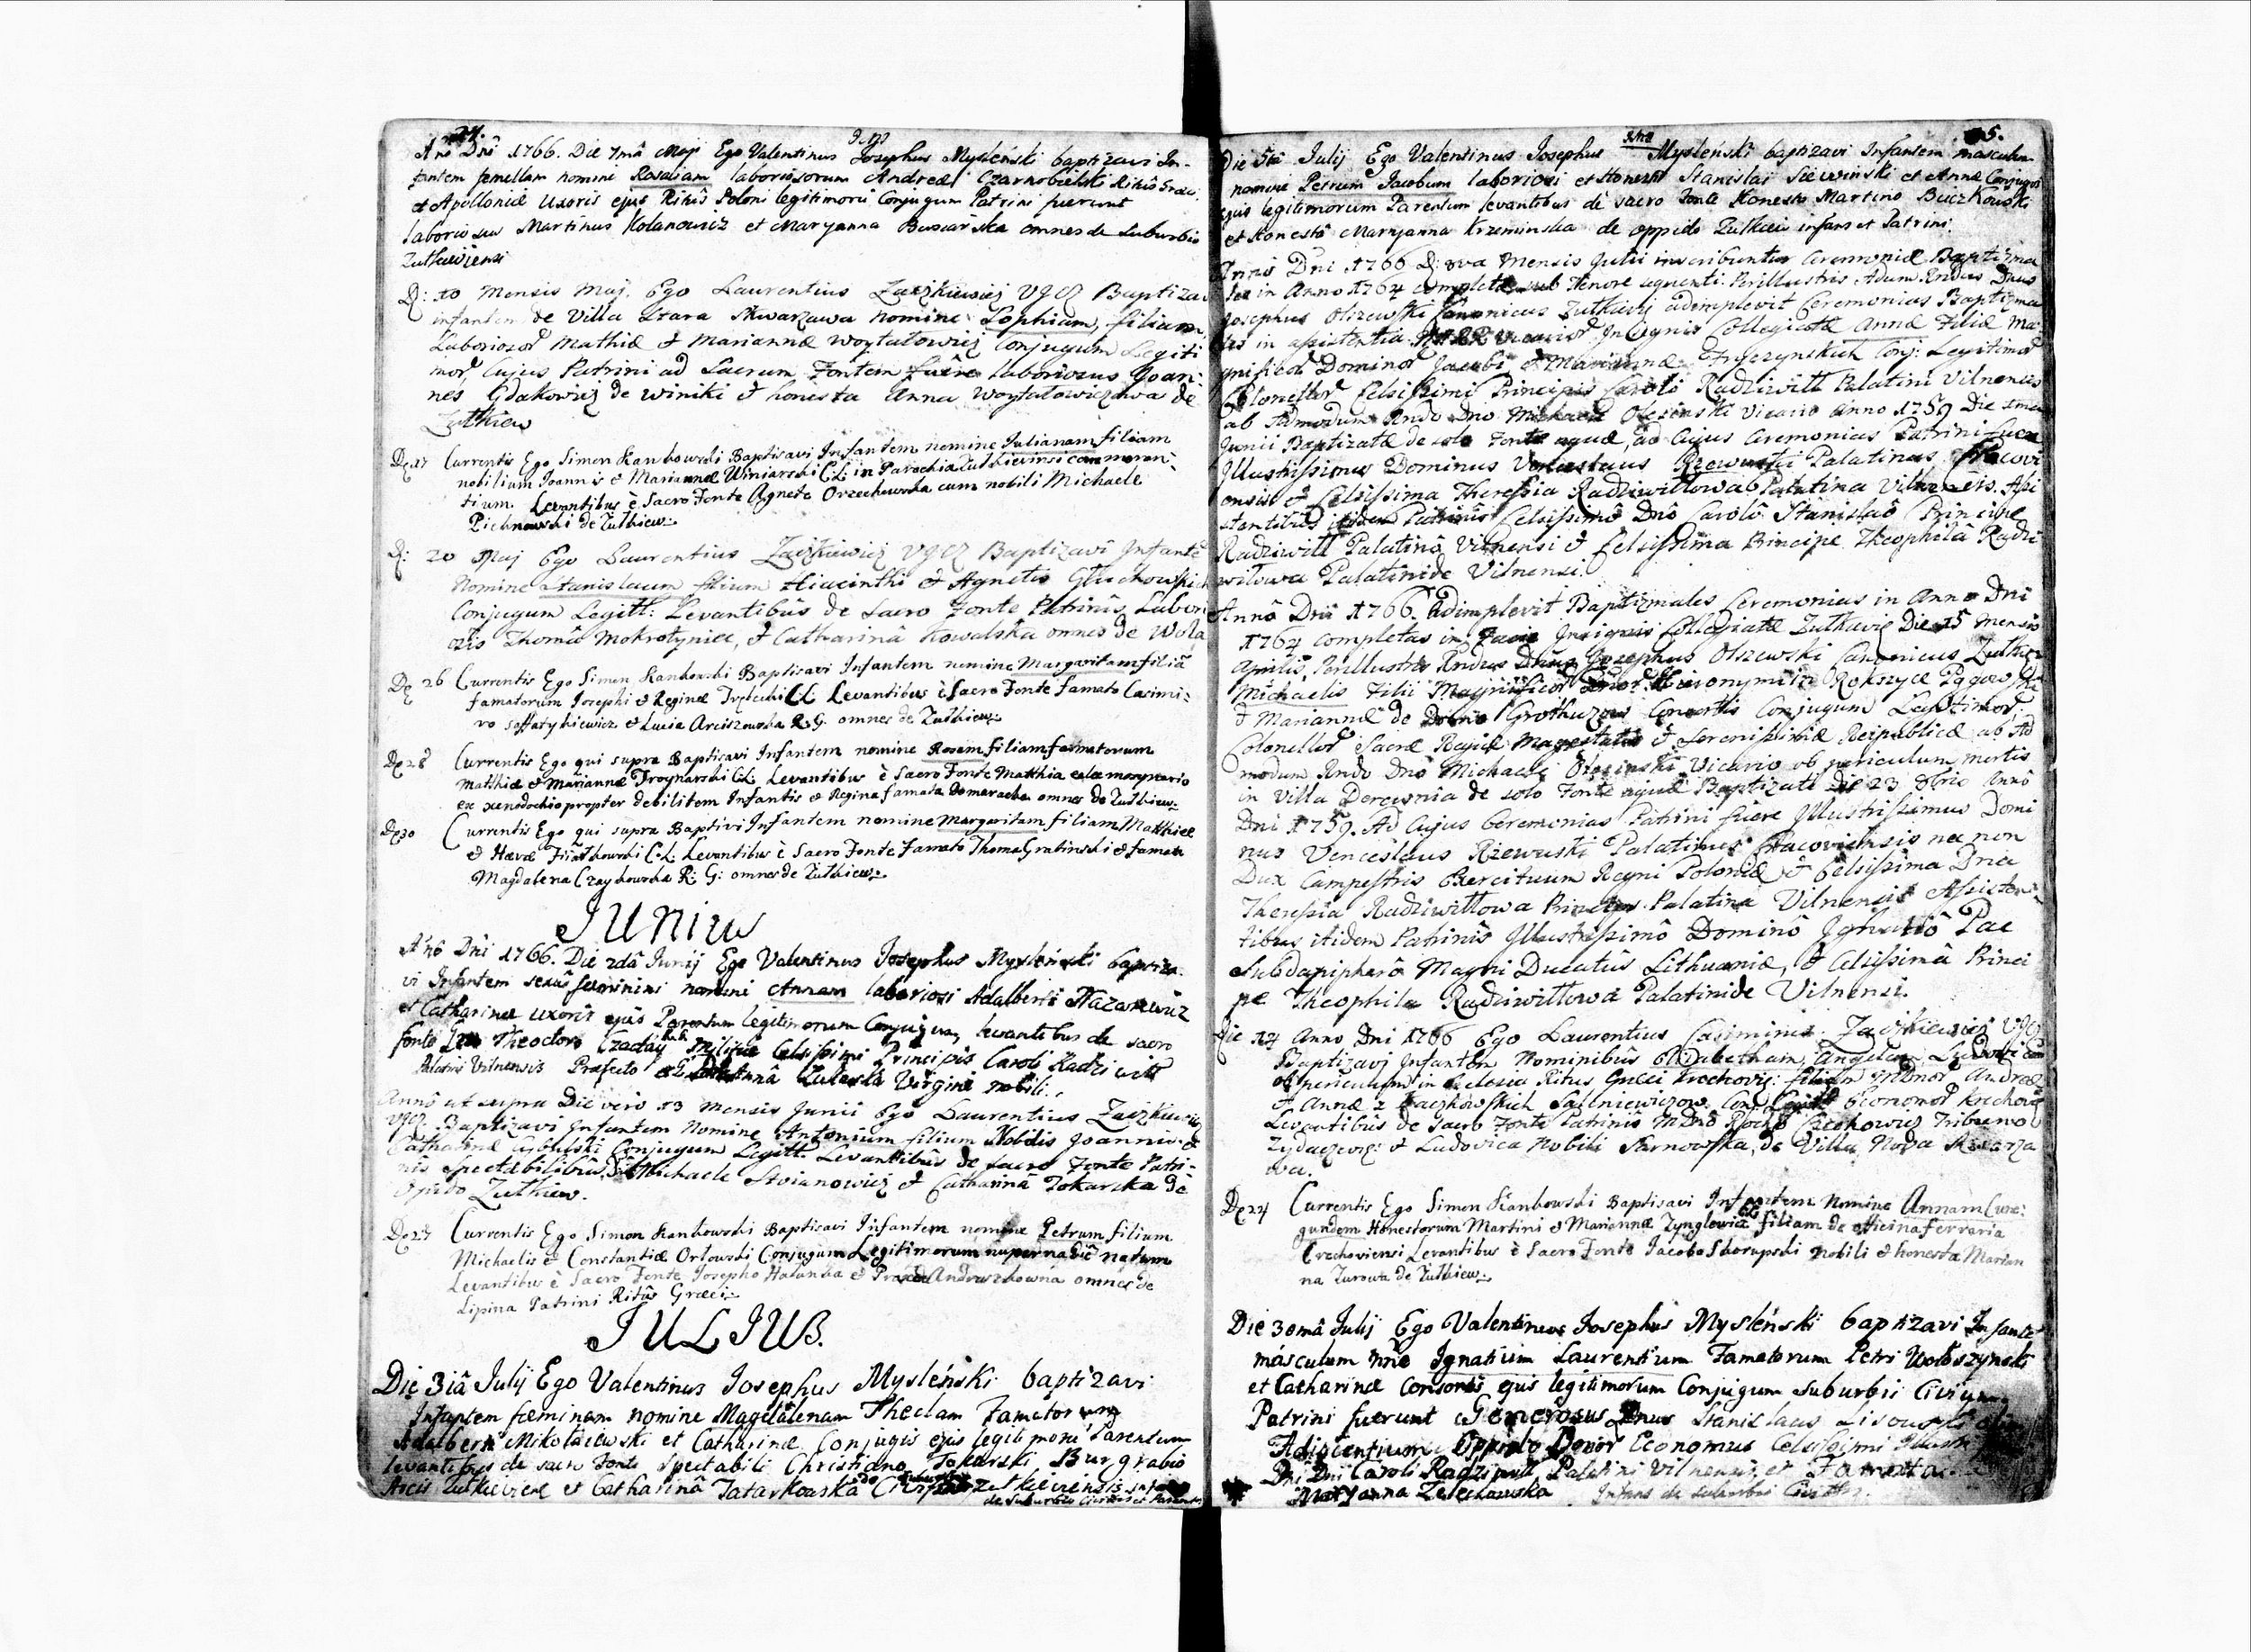 24.
Anô Dnî 1766. Die 7mâ Maji Ego Valentinus Josephus Mysleński baptizavi In-
fantem femellam nomine Rosaliam laboriosorum Andreæ Czarnobielski Ritûs Græci
et Apolloniæ Uxoris ejus Ritûs Poloni legitimorũ Conjugum Patrini fuerunt
laboriosus Martinus Kolanowicz et Maryanna Busiarska omnes de suburbio
Zulkieviensi
D: 10 Mensis Maj. Ego Laurentius Zaczkiewicz VGCZ Baptizavi
infantem de Villa Stara Skwarzawa nomine Sophiam, filiam
Laboriosor Mathiæ & Mariannæ Woytatowicz Conjugum Legiti
mor, Cujus Patrini ad Sacrum Fontem fuêre laboriosus Joan-
nes Gdakowicz de Winiki & honesta Anna Woytatowiczowa de
Zulkiew
De 17 Currentis Ego Simon Kankowski Baptisavi Infantem nomine Julianam filiam
nobilium Joannis & Mariannæ Winiarski C.L. in Parochia Zulkieviensi commoran-
tium. Levantibus è Sacro Fonte Agnete Orzechowska cum nobili Michaele
Piehnowski de Zulkiew
D: 20 Maj Ego Laurentius Zaczkiewicz VGCZ Baptizavi Infantẽ
Nomine Stanislaum filium Hiacinthi & Agnetis Gluchowskich
Conjugum Legitt: Levantibûs de Sacro Fonte Patrinîs Labori
osis Thomâ Mokrotynice, & Catharinâ Kowalska omnes de Wola
De 26 Currentis Ego Simon Kankowski Baptisavi Infantem nomine Margaritam filiã
famatorum Josephi & Reginæ CL Levantibus è Sacro Fonte famato Casimi-
ro Soffatykiewicz & Lucia Arciszewska R.G. omnes de Zulkiew
De 28 Currentis Ego qui supra Baptisavi Infantem nomine Rosam filiam famatorum
Matthiæ & Mariannæ Troynarski C.L. Levantibus è Sacro Fonte Matthia eleemosynario
ex xenodochio propter debilitem Infantis & Regina famata omnes de Zulkiew
De 30 Currentis Ego qui supra Baptivi Infantem nomine Margaritam filiam Matthiæ
& Hævæ C.L. Levantibus è Sacro Fonte famato Thoma Grabinski & famata
Magdalena Czaykowska R: G: omnes de Zulkiew
JUNIUS
Anô Dnî 1766. Die 2dâ Junij Ego Valentinus Josephus Mysleński baptiza-
vi Infantem sexûs feminini nomini Annam laboriosi Adalberti Nazarewicz
et Catharinæ uxoris ejus Parentum legitimorum Conjugum, levantibus de sacro
fonte Theodoro Czaday Militiæ Celsissimi Principis Caroli Radziwill
Palatini Vilnensis Præfecto Virgine nobili.
Annô ut supra Die vero 13 Mensis Junii Ego Laurentius Zaczkiewicz
VGCZ Baptizavi Infantem Nomine Antonium filium Nobilis Joannis &
Catharinæ Conjugum Legitt. Levantibûs de Sacro Fonte Patri-
nis Spectabilibûs Michaele Stoianowicz & Catharinâ Tokarska de
Opido Zulkiew.
De 27 Currentis Ego Simon Kankowski Baptisavi Infantem nomine Petrum filium
Michaelis & Constantiæ Orlowski Conjugum Legitimorum nuper natum
Levantibus è Sacro Fonte Josepho Halunka & omnes de
Lipina Patrini Ritûs Græci
JULIUS.
Die 3iâ Julij Ego Valentinus Josephus Mysleński baptizavi
Infantem fœminam nomine Magdalenam Theclam Famatorum
Adalberti Mikolaiewski et Catharinæ Conjugis ejus legitimorũ Parentum
levantibus de sacro fonte Spectabili Christiano Tokarski Burgrabio
Arcis Zulkieviene et Catharinâ Tatarkowska
de Suburbio
5.
Die 5tâ Julij Ego Valentinus Josephus Mysleński baptizavi Infantem masculum
nomine Petrum Jacobum laboriosi et Honesti Stanislai Siewinski et Annæ Conjugis
ejus legitimorum Parentum levantibus de sacro fonte Honesto Martino Buczkowski
et Honestâ Maryanna Krzeminska de oppido Zulkiew infans et Patrini.
Annô Dni 1766 D: 8va Mensis Julii inscribuntur Ceremoniæ Baptisma
les in Anno 1764 completæ sub Tenore sequenti. Perillustris Adum. Rndus Dnus
Josephus Olszewski Canonicus Zulkievij adimplevit Ceremonias Baptizma
les in assistentia Vicarior Insignis Collegiatæ Annæ Filiæ Ma-
gnificor Dominor Jacobi & Mariannæ Conj: Legitimor
Colonellor Celsissimi Principis Caroli Radziwill Palatini Vilnensis
ab Admodum Rndo Dno Michaele Olesinski Vicario Anno 1759 Die
Junii Baptizatæ de solo Fonte aquæ, ad Cujus Ceremonias Patrini fuere
Illustrissimus Dominus Venceslaus Rzewuski Palatinus Cracovi
ensis & Celsissima Theressia Radziwillowa Palatina Vilnensis. Assi
stentibûs itidem Patrinis Celsissimô Dnô Carolô Stanislaô Principe
Radziwill Palatinô Vilnensi & Celsissima Principe Theophilâ Radzi
wilowa Palatinide Vilnensi.
Annô Dni 1766. Adimplevit Baptizmales Ceremonias in Anno Dni
1764 completas in Insignis Collegiatæ Zulkaviæ Die 15 Mensis
Aprilis, Perillustris Rndus Dnus Josephus Olszewski Canonicus Zulkie
Michaelis Filii Magnificor Dnor Hieronymi Rokszyce
& Mariannæ de Domo Grothuzow Consortis Conjugum Legitimor
Colonellor Sacræ Regiæ Majestatis & Serenissimæ Reipublicæ ab Ad
modum Rndo Dnô Michaele Olesinski Vicario ob periculum mortis
in Villa Derewnia de solo Fonte aquæ Baptizati die 23 Annô
Dni 1759. Ad Cujus Ceremonias Patrini fuere Illustrissimus Domi
nus Venceslaus Rzewuski Palatinus Cracoviensis nec non
Dux Campestris Exercituum Regni Poloniæ & Celsissima Dna
Theressia Radziwillowa Princeps Palatina Vilnensis Assisten-
tibus itidem Patrinîs Illustrissimô Dominô Ignatiô Pac
Subdapipharô Magni Ducatûs Lithuaniæ, & Celsissimâ Princi
pe Theophila Radziwillowa Palatinide Vilnensi.
Die 14 Anno Dni 1766 Ego Laurentius Casimirus Zaczkiewicz VGCZ
Baptizavj Infantem Nominibûs Elizabetham, Angelam
ob periculum in Eclesia Ritus Græci filiam Andreæ
& Annæ z Conj: Legitt:
Levantibûs de Sacro Fonte Patrinis Tribuno
& Ludovica Nobili Sarnowska, de Villa Nova Skwarza
wa.
De 24 Currentis Ego Simon Kankowski Baptisavi Infantem Nomine Annam Cune-
gundem Honestorum Martini & Mariannæ Zynglowicz filiam de officina ferraria
Crechoviensi Levantibus è Sacro Fonte Jacobo Skorupski nobili & honesta Marian
na Zurowa de Zulkiew
Die 30mâ Julij Ego Valentinus Josephus Mysleński baptizavi Infantem
másculum nñe Ignatium Laurentium Famatorum Petri Woloszynski
et Catharinæ Consortis ejus legitimorum Conjugum Suburbii Civium
Patrini fuerunt Generosus Dnus Stanislaus Lisowski
Oppido Economus Celsissimi
Dni Dni Caroli Radziwill Palatini Vilnensis, et Famata
Maryanna Zeleslawska Infans de suburbio